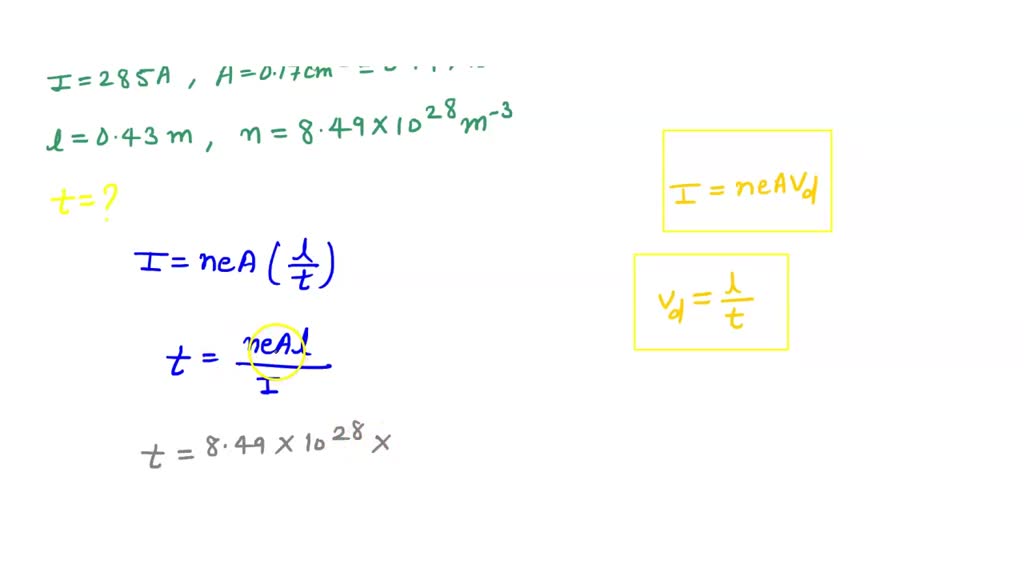 I = 285A , A = 0.17cm
l = 0.43 m , n = 8.49 × 10^28 m^-3
t = ?
I = neA (l/t)
t = neAl/I
t = 8.49 × 10^28 ×
I = neAVd
Vd = l/t